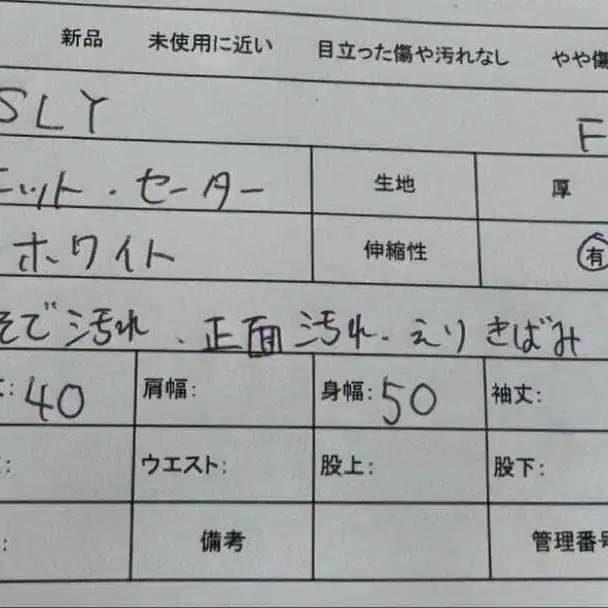 新品 未使用に近い 目立った傷や汚れなし やや傷
SLY F
ニット・セーター 生地 厚
ホワイト 伸縮性 有
そで汚れ、正面汚れ、えりきばみ
: 40 肩幅: 身幅: 50 袖丈:
: ウエスト: 股上: 股下:
: 備考 管理番号